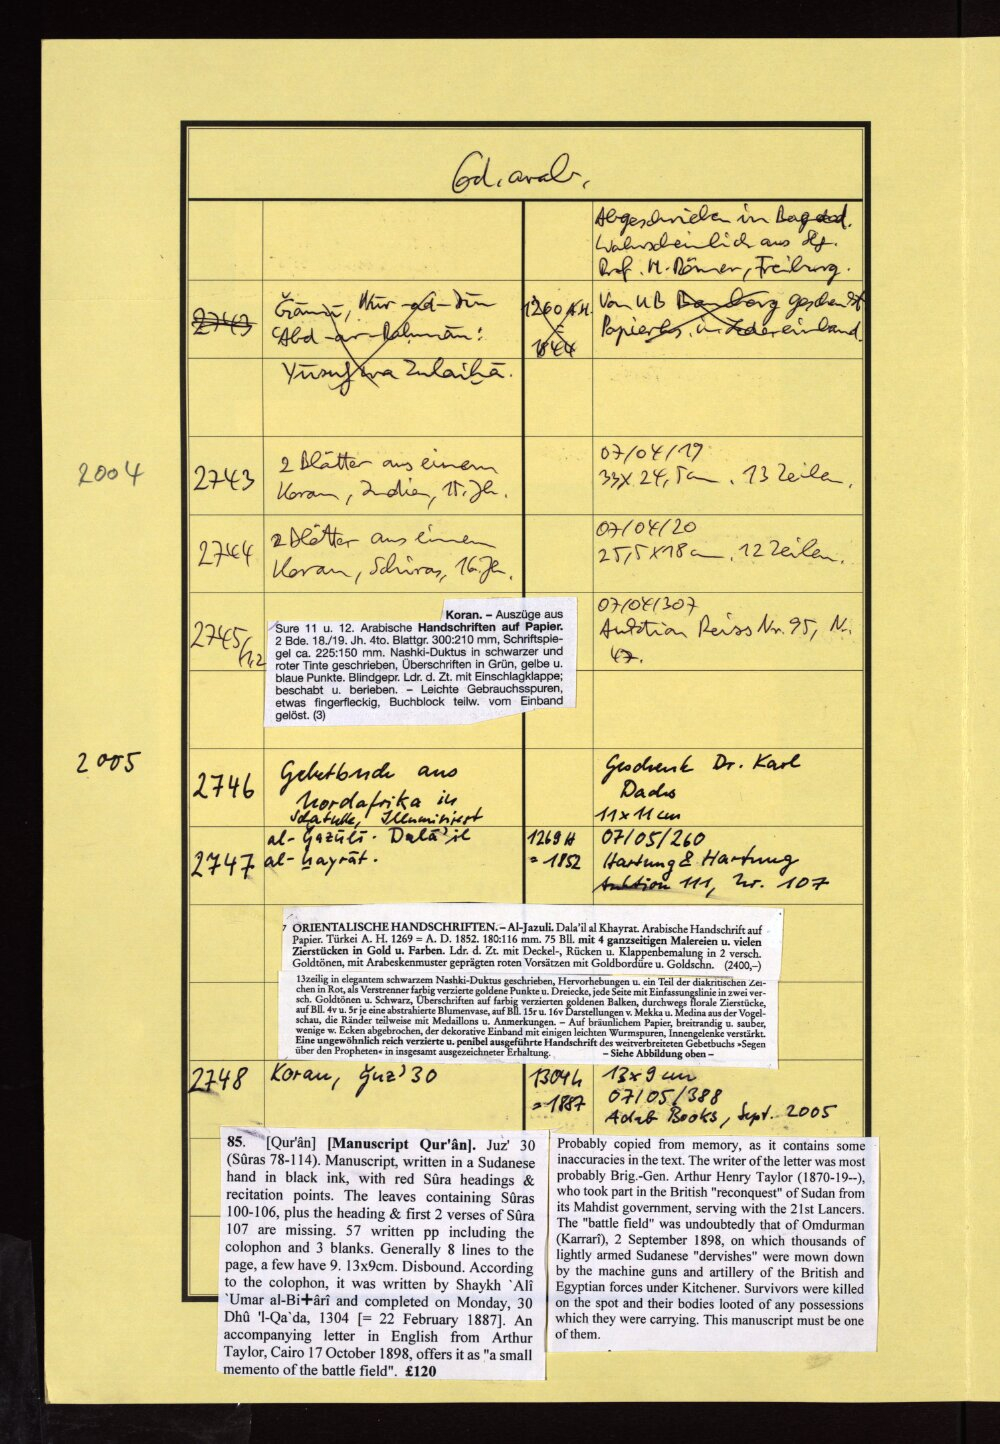 Cod. arab.
Abgeschrieben in Bagdad.
Wahrscheinlich aus Slg.
Prof. H. Römer, Freiburg.
2743
Ǧāmī, Nūr-ad-Dīn
Abd-ar-Rahmān:
Yūsuf wa Zulaiḫā.
1260 A.H.
=
1844
Von UB Bamberg geschenkt
Papierhs. in Ledereinband.
2004
2743
2 Blätter aus einem
Koran, Indien, 15. Jh.
07/04/19
33 x 24,5 cm. 13 Zeilen.
2744
2 Blätter aus einem
Koran, Schiras, 16. Jh.
07/04/20
25,5 x 18 cm. 12 Zeilen.
2745/1,2
Koran. – Auszüge aus
Sure 11 u. 12. Arabische Handschriften auf Papier.
2 Bde. 18./19. Jh. 4to. Blattgr. 300:210 mm, Schriftspie-
gel ca. 225:150 mm. Nashki-Duktus in schwarzer und
roter Tinte geschrieben, Überschriften in Grün, gelbe u.
blaue Punkte. Blindgepr. Ldr. d. Zt. mit Einschlagklappe;
beschabt u. berieben. – Leichte Gebrauchsspuren,
etwas fingerfleckig, Buchblock teilw. vom Einband
gelöst. (3)
07/04/307
Auktion Reiss Nr. 95, N.
47.
2005
2746
Gebetbuch aus
Nordafrika in
Schatulle, Illuminiert
Geschenk Dr. Karl
Dachs
11 x 11 cm
2747
al-Ǧazūlī. Dalā'il
al-ḫayrāt.
1269 H
= 1852
07/05/260
Hartung & Hartung
Auktion 111, Nr. 107
ORIENTALISCHE HANDSCHRIFTEN. – Al-Jazuli. Dala'il al Khayrat. Arabische Handschrift auf
Papier. Türkei A. H. 1269 = A. D. 1852. 180:116 mm. 75 Bll. mit 4 ganzseitigen Malereien u. vielen
Zierstücken in Gold u. Farben. Ldr. d. Zt. mit Deckel-, Rücken u. Klappenbemalung in 2 versch.
Goldtönen, mit Arabeskenmuster geprägten roten Vorsätzen mit Goldbordüre u. Goldschn. (2400,–)
13zeilig in elegantem schwarzem Nashki-Duktus geschrieben, Hervorhebungen u. ein Teil der diakritischen Zei-
chen in Rot, als Verstrenner farbig verzierte goldene Punkte u. Dreiecke, jede Seite mit Einfassungslinie in zwei ver-
sch. Goldtönen u. Schwarz, Überschriften auf farbig verzierten goldenen Balken, durchwegs florale Zierstücke,
auf Bll. 4v u. 5r je eine abstrahierte Blumenvase, auf Bll. 15r u. 16v Darstellungen v. Mekka u. Medina aus der Vogel-
schau, die Ränder teilweise mit Medaillons u. Anmerkungen. – Auf bräunlichem Papier, breitrandig u. sauber,
wenige w. Ecken abgebrochen, der dekorative Einband mit einigen leichten Wurmspuren, Innengelenke verstärkt.
Eine ungewöhnlich reich verzierte u. penibel ausgeführte Handschrift des weitverbreiteten Gebetbuchs »Segen
über den Propheten« in insgesamt ausgezeichneter Erhaltung. – Siehe Abbildung oben –
2748
Koran, Ǧuz' 30
1304 h
= 1887
13 x 9 cm
07/05/388
Adab Books, Sept. 2005
85. [Qur'ân] [Manuscript Qur'ân]. Juz' 30
(Sûras 78-114). Manuscript, written in a Sudanese
hand in black ink, with red Sûra headings &
recitation points. The leaves containing Sûras
100-106, plus the heading & first 2 verses of Sûra
107 are missing. 57 written pp including the
colophon and 3 blanks. Generally 8 lines to the
page, a few have 9. 13x9cm. Disbound. According
to the colophon, it was written by Shaykh `Alî
`Umar al-Bi✝ârî and completed on Monday, 30
Dhû 'l-Qa`da, 1304 [= 22 February 1887]. An
accompanying letter in English from Arthur
Taylor, Cairo 17 October 1898, offers it as "a small
memento of the battle field". £120
Probably copied from memory, as it contains some
inaccuracies in the text. The writer of the letter was most
probably Brig.-Gen. Arthur Henry Taylor (1870-19--),
who took part in the British "reconquest" of Sudan from
its Mahdist government, serving with the 21st Lancers.
The "battle field" was undoubtedly that of Omdurman
(Karrarî), 2 September 1898, on which thousands of
lightly armed Sudanese "dervishes" were mown down
by the machine guns and artillery of the British and
Egyptian forces under Kitchener. Survivors were killed
on the spot and their bodies looted of any possessions
which they were carrying. This manuscript must be one
of them.